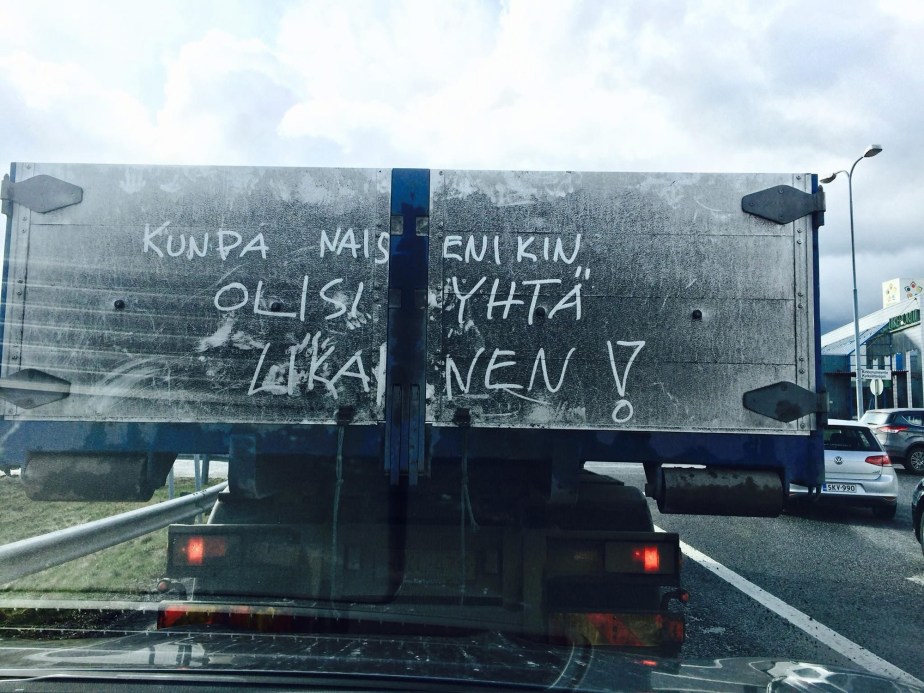 KUNPA NAISENIKIN
OLISI YHTÄ
LIKAINEN!
SKV-990